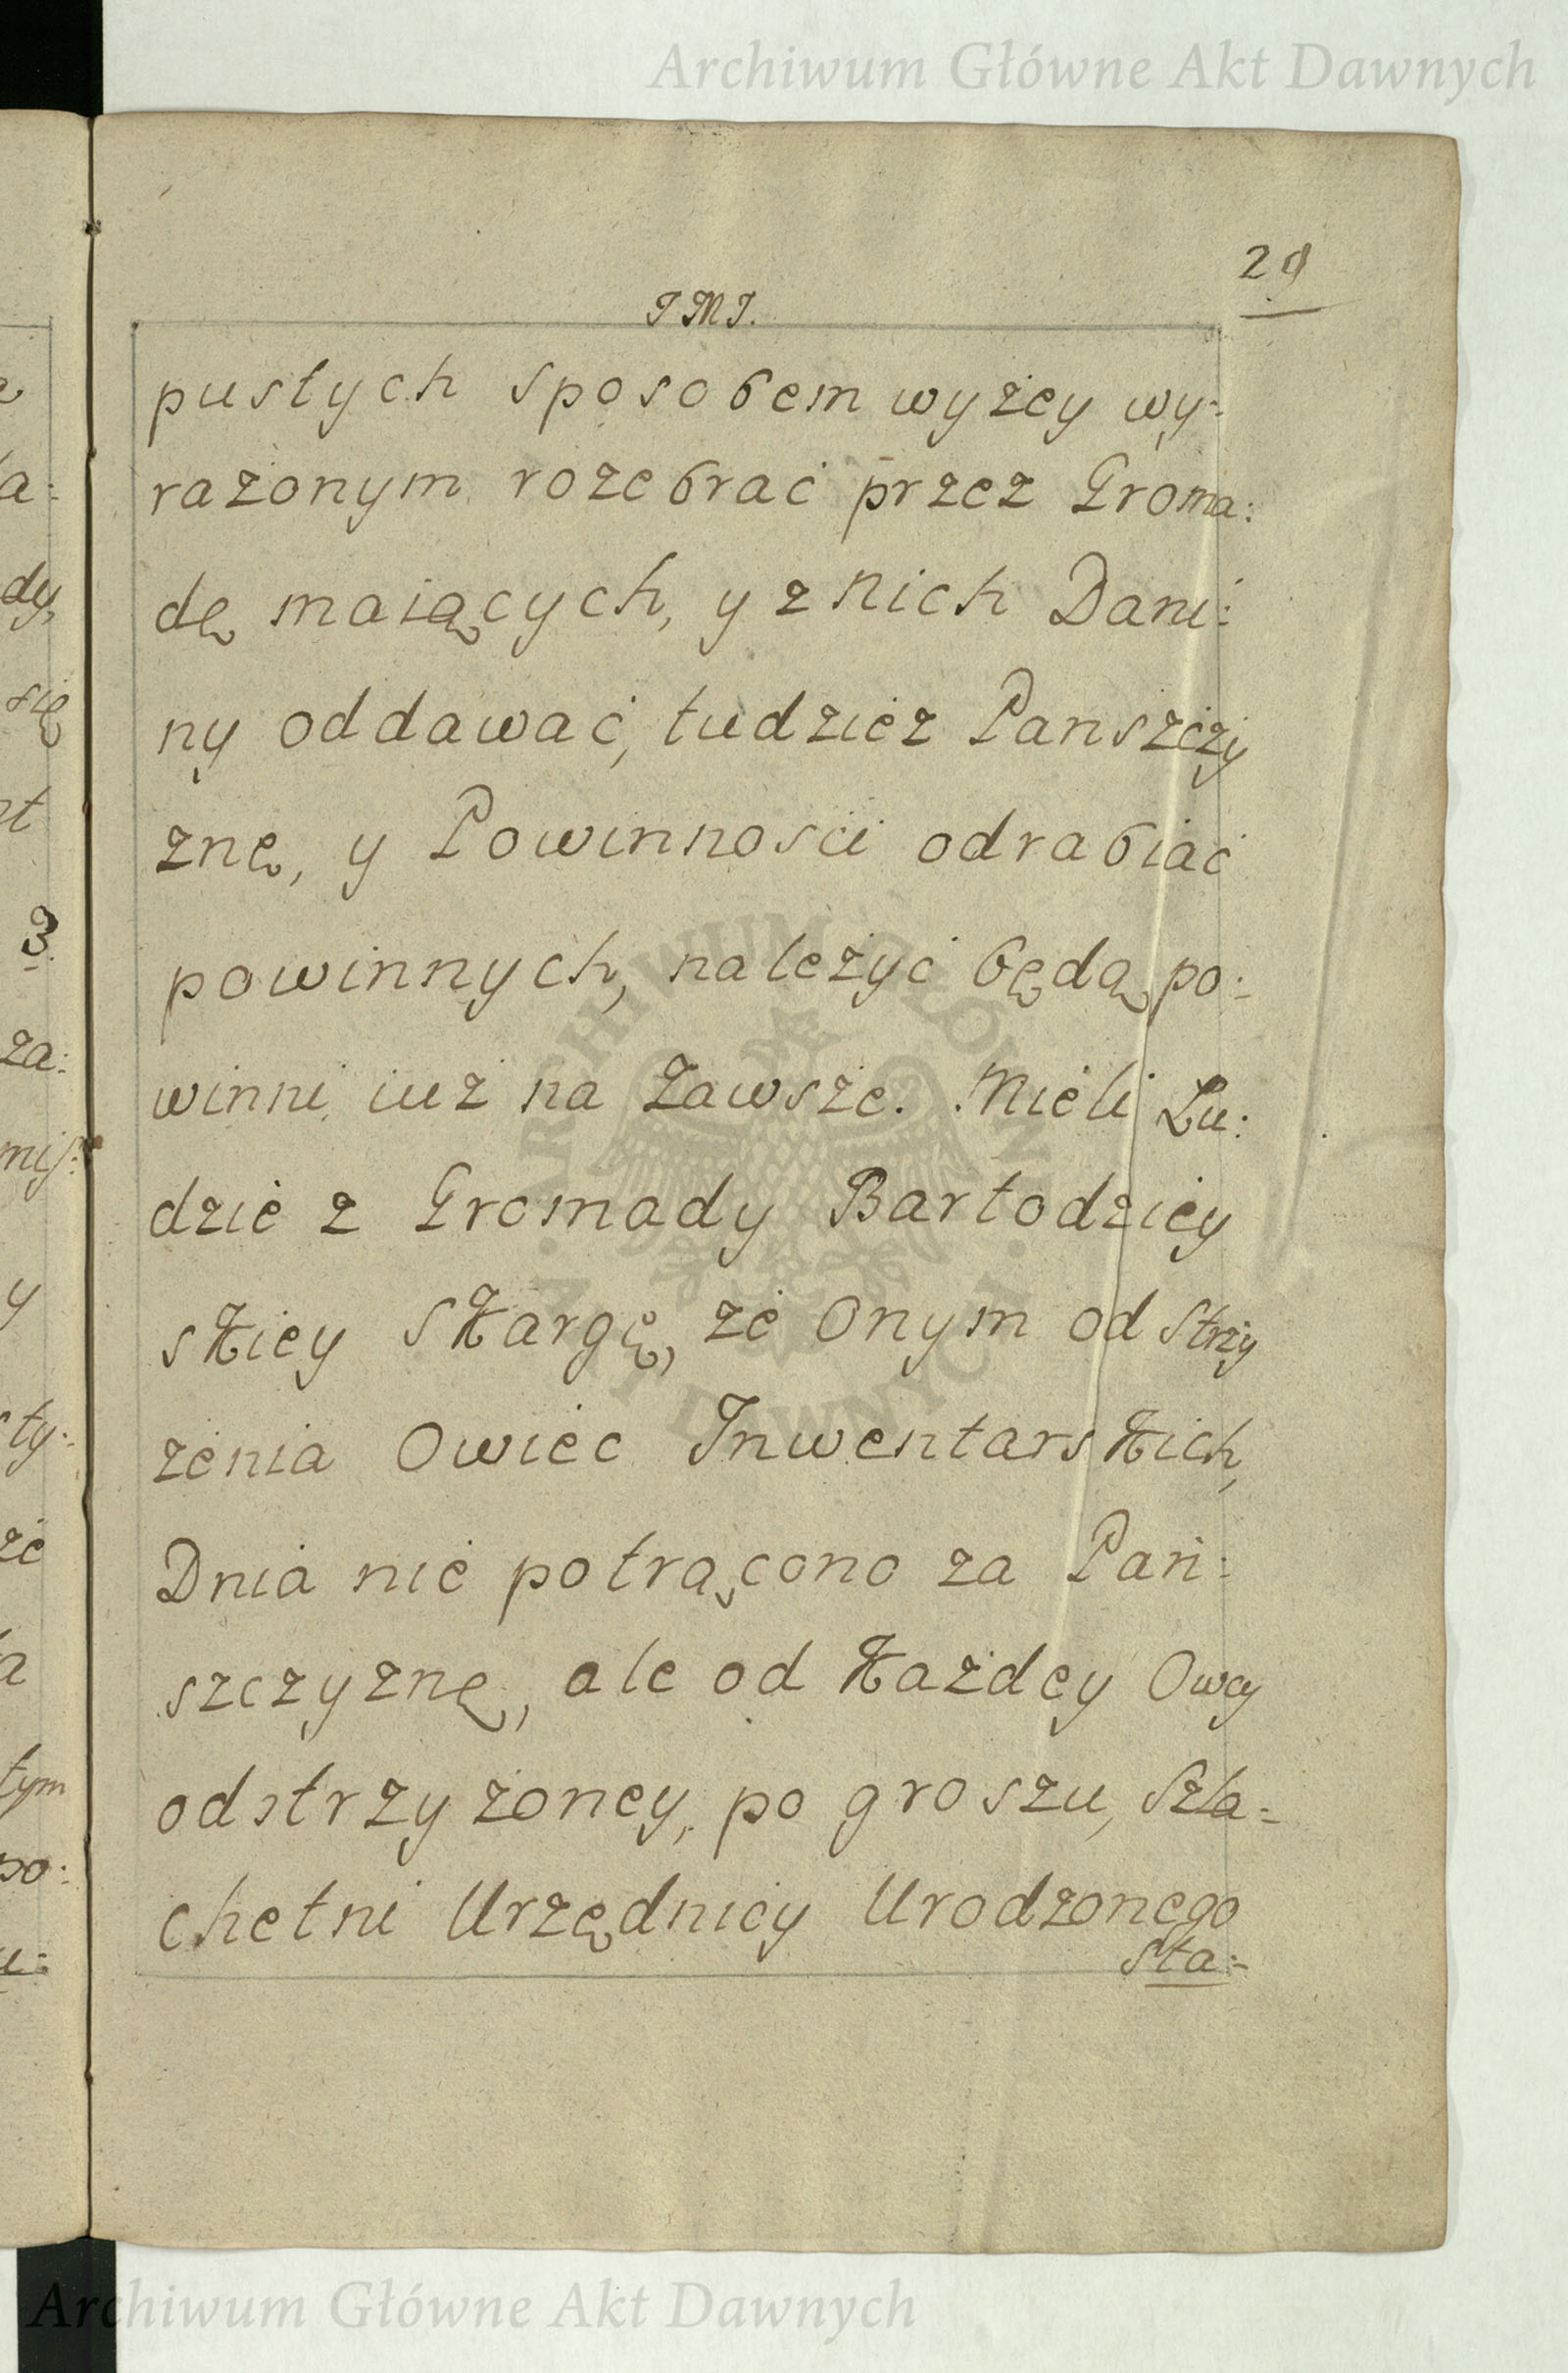 Archiwum Główne Akt Dawnych
J M J.
pustych sposobem wyżey wy:
rażonym rozebrać przez Groma:
dę maiących, y z nich Dani:
ny oddawać, tudzież Panszczy
znę, y Powinnosći odrabiać
powinnych, należyć będą po:
winni iuż na Zawsze. Mieli Lu:
dzie z Gromady Bartodziey
skiey skargę, że Onym od strzy
żenia Owiec Inwentarskich,
Dnia nie potrącono za Pań:
szczyznę, ale od każdey Owcy
odstrzyżoney, po groszu, Szla:
chetni Urzędnicy Urodzonego
Sta:
Archiwum Główne Akt Dawnych